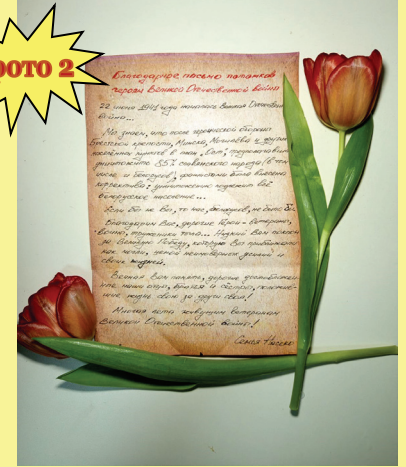 ФОТО 2
Благодарное письмо потомков
героям Великой Отечественной войны
22 июня 1941 года началась Великая Отечественная
война...
Мы знаем, что после героической обороны
Брестской крепости, Минска, Могилёва и других
населённых пунктов в план "Ост",
уничтожить 85% славянского народа (в том
числе и белорусов), фашистами была внесена
корректива: уничтожению подлежит всё
белорусское население...
Если бы не вы, то нас, белорусов, не было бы.
Благодарим Вас, дорогие герои - ветераны,
воины, труженики тыла... Низкий Вам поклон
за Великую Победу, которую Вы приближали
как могли, ценой неимоверных усилий и
своих жизней.
Вечная Вам память, дорогие
положив-
шие жизнь свою за други своя!
Многая лета живущим ветеранам
Великой Отечественной войны!
Семья